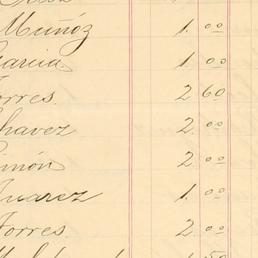 Muñoz 1 00
Garcia 1 00
Torres 2 60
Chavez 2 00
Simón 2 00
Juarez 1 00
Torres 2 00
50